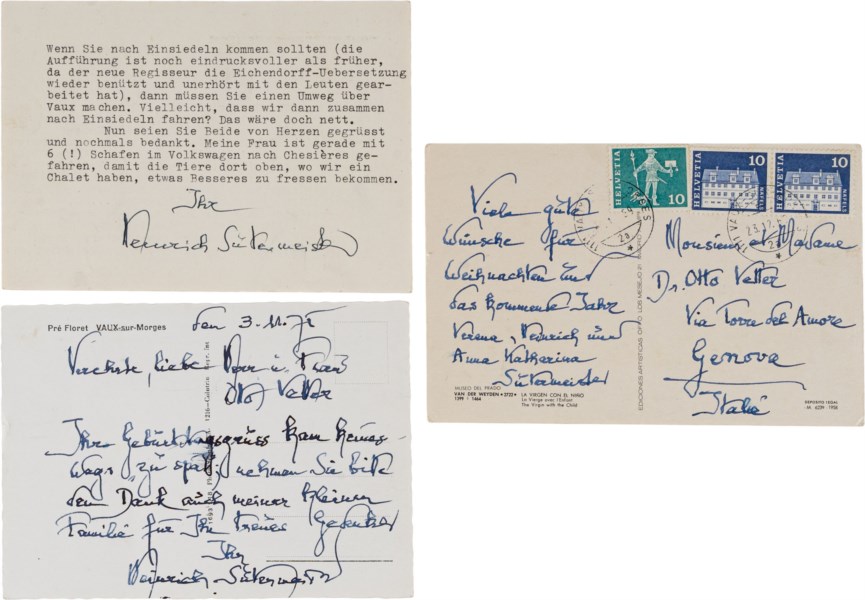 Wenn Sie nach Einsiedeln kommen sollten (die
Aufführung ist noch eindrucksvoller als früher,
da der neue Regisseur die Eichendorff-Uebersetzung
wieder benützt und unerhört mit den Leuten gear-
beitet hat), dann müssen Sie einen Umweg über
Vaux machen. Vielleicht, dass wir dann zusammen
nach Einsiedeln fahren? Das wäre doch nett.
Nun seien Sie Beide von Herzen gegrüsst
und nochmals bedankt. Meine Frau ist gerade mit
6 (!) Schafen im Volkswagen nach Chesières ge-
fahren, damit die Tiere dort oben, wo wir ein
Chalet haben, etwas Besseres zu fressen bekommen.
Ihr
Heinrich Sutermeister
Pré Floret VAUX-sur-Morges
den 3.
Verehrte, liebe Herr u. Frau
Otto Vetter
Ihr Geburtstagsgruss kam keines-
wegs "zu spät; nehmen Sie bitte
den Dank auch meiner kleinen
Familie für Ihr treues Gedenken
Ihr
Heinrich Sutermeister
HELVETIA 10
HELVETIA 10 NÄFELS
HELVETIA 10 NÄFELS
Viele gute
Wünsche für
Weihnachten und
das kommende Jahr
Verena, Heinrich und
Anna Katharina
Sutermeister
MUSEO DEL PRADO
VAN DER WEYDEN •2722•
1399 / 1464
LA VIRGEN CON EL NIÑO
La Vierge avec l'Enfant
The Virgin with the Child
EDICIONES ARTISTICAS
Monsieur et Madame
Dr. Otto Vetter
Via Torre del Amore
Genova
Italie
DEPOSITO LEGAL